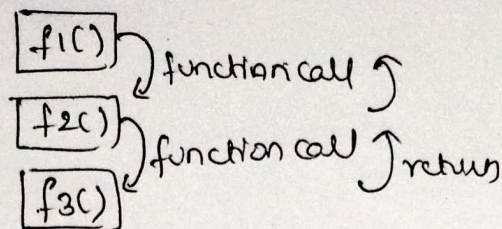 f1()
function call
f2()
function call return
f3()